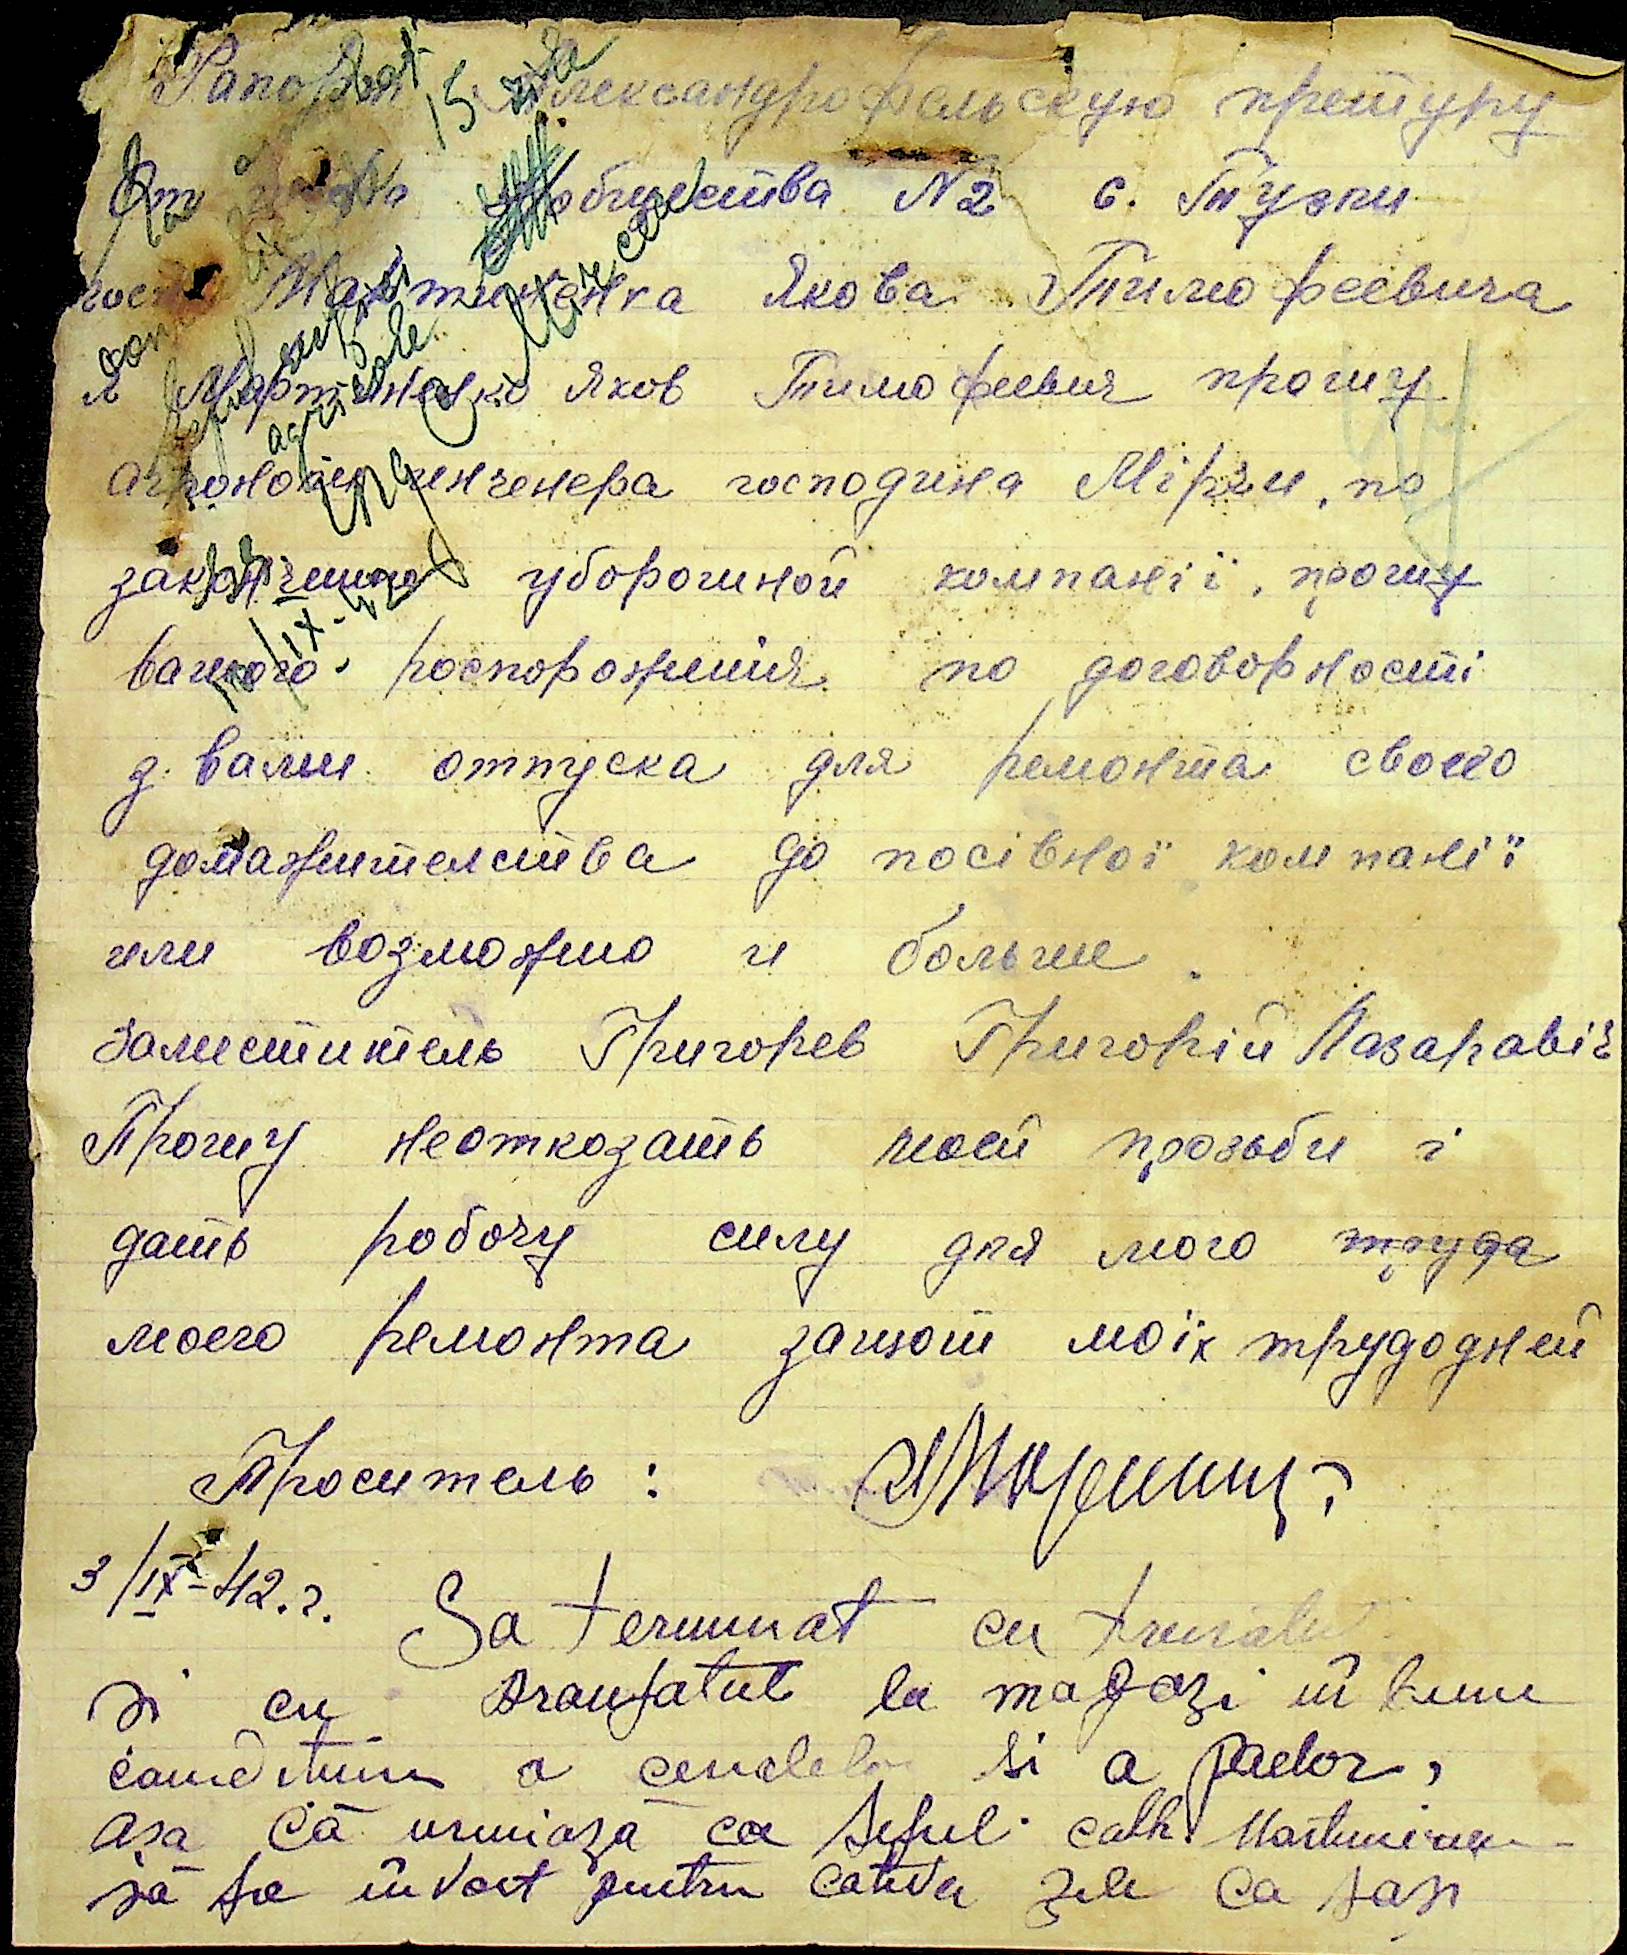 Рапорт Александрофельскую претуру
От общества N2 с. Тузли
Мартиненка Якова Тимофеевича
Я Мартиненко Яков Тимофеевич прошу
агронома инженера господина Мірчи, по
уборочной компанії, прошу
вашого роспорожения по договорності
з вами отпуска для ремонта своего
домажителства до посівної компанії
или возможно и больше.
Заместитель Григорев Григорій Лазаравіч
Прошу неотказать моей прозьби і
дать робочу силу для мого труда
моего ремонта защот моїх трудодней
Проситель:
3/IX-42.г.
Sa terminat cu
si cu aranjatul la magazi în bune
a si a paelor,
asa că urmiază ca seful colh.
să fie învoit pentru cateva zile ca sasi
15
agricole
/IX-42